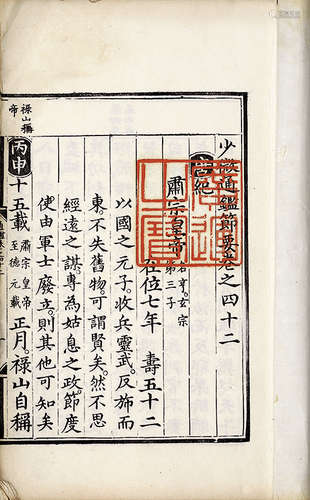 少微通鑑節要卷之四十二
唐紀
肅宗皇帝 名亨玄宗第三子 在位七年 壽五十二
以國之元子。收兵靈武。反斾而
東。不失舊物。可謂賢矣。然不思
經遠之謀。專為姑息之政。節度
使由軍士廢立。則其他可知矣
丙申 十五載 肅宗皇帝至德元載 正月。祿山自稱
祿山稱帝